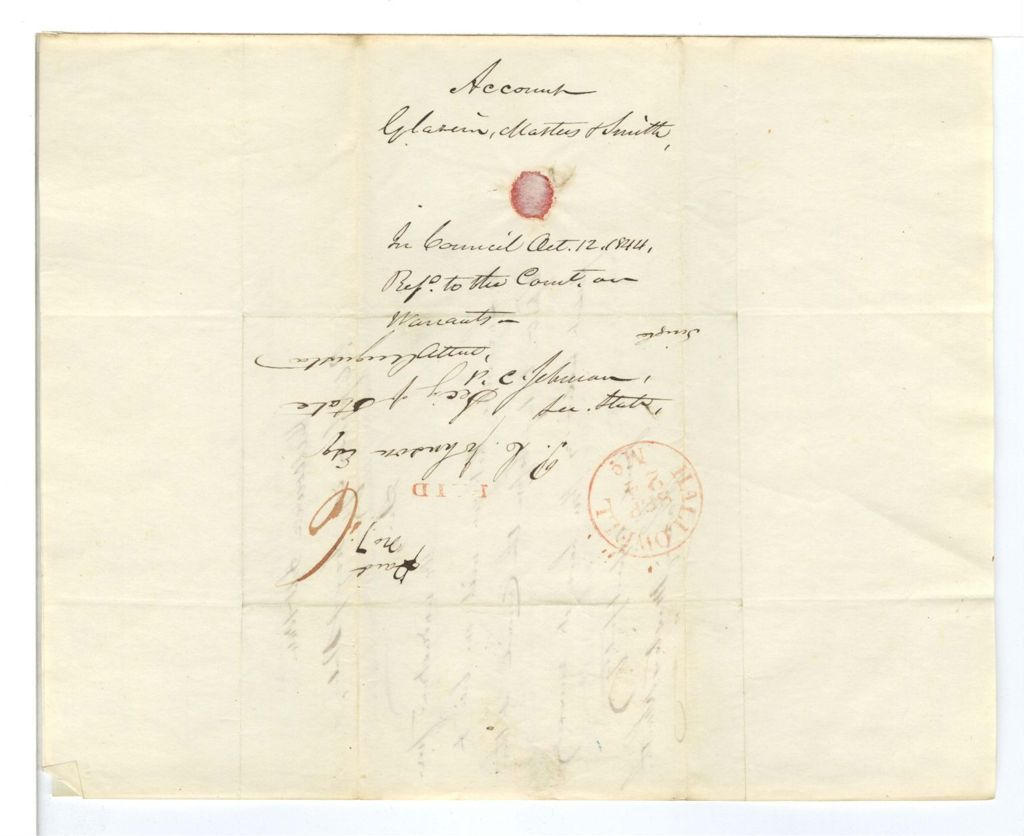 Account
Glazein, Masters & Smith,
In Council Oct. 12. 1844,
Refd. to the Comt. on
Warrants –
Attest,
P. C. Johnson,
Sec. State,
Single
P. C. Johnson Esq
Secy of State
Augusta
PAID
6
Paid
No 7.
HALLOWELL
Me
SEP
24